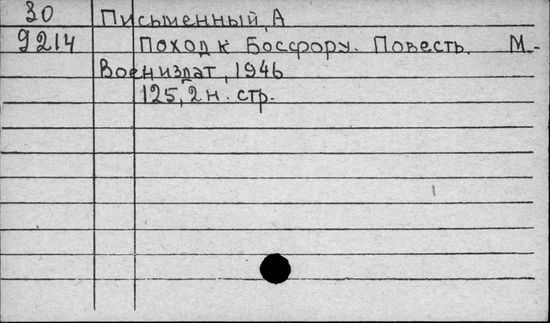 30 Письменный, А
9214 Поход к Босфору. Повесть. М.-
Воениздат, 1946
125, 2 н. стр.